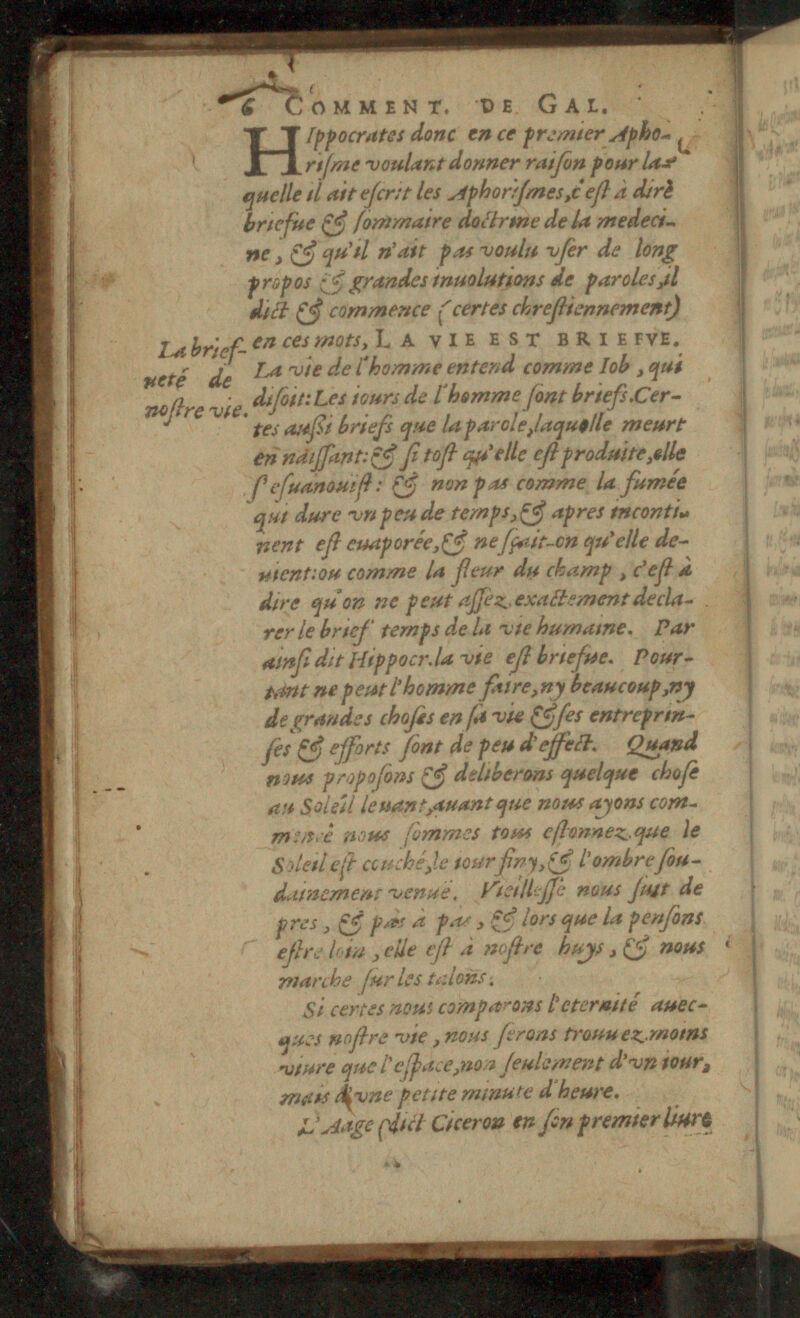 6 COMMENT. DE GAL.
HIppocrates donc en ce premier Apho-
riſme voulant donner raiſon pour la-
quelle il ait eſcrit les Aphoriſmes, c'eſt à dirè
briefue & ſommaire doctrine de la medeci-
ne, & qu'il n'ait pas voulu vſer de long
propos & grandes inuolutions de paroles, il
dict & commence (certes chreſtiennement)
en ces mots, LA VIE EST BRIEFVE.
La brief-
ueté de
noſtre vie.
La vie de l'homme entend comme Iob, qui
diſoit: Les iours de l'homme ſont briefs. Cer-
tes auſſi briefs que la parole, laquelle meurt
en naiſſant: & ſi toſt qu'elle eſt produite, elle
ſ'eſuanouiſt: & non pas comme la fumée
qui dure vn peu de temps, & apres inconti-
nent eſt euaporée, & ne ſçait-on qu'elle de-
uient: ou comme la fleur du champ, c'eſt à
dire qu'on ne peut aſſez exactement decla-
rer le brief temps de la vie humaine. Par
ainſi dit Hippocr. la vie eſt briefue. Pour-
tant ne peut l'homme faire, ny beaucoup, ny
de grandes choſes en ſa vie & ſes entreprin-
ſes & efforts ſont de peu d'effect. Quand
nous propoſons & deliberons quelque choſe
au Soleil leuant, auant que nous ayons com-
mencé nous ſommes tous eſtonnez, que le
Soleil eſt couché, le iour finy, & l'ombre ſou-
dainement venuë. Vieilleſſe nous ſuit de
pres, & pas à pas, & lors que la penſons
eſtre loin, elle eſt à noſtre huys, & nous
marche ſur les talons.
Si certes nous comparons l'eternité auec-
ques noſtre vie, nous ſerons trouuez moins
viure que l'eſpace, non ſeulement d'vn iour,
mais d'vne petite minute d'heure.
L'Aage (dict Ciceron en ſon premier liure